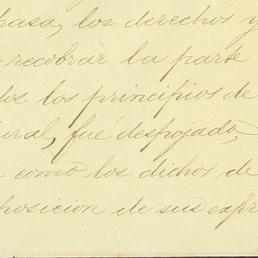 basa, los derechos y
recobrar la parte
los los principios de
ural, fué despojado,
como los dichos de
posicion de sus expr